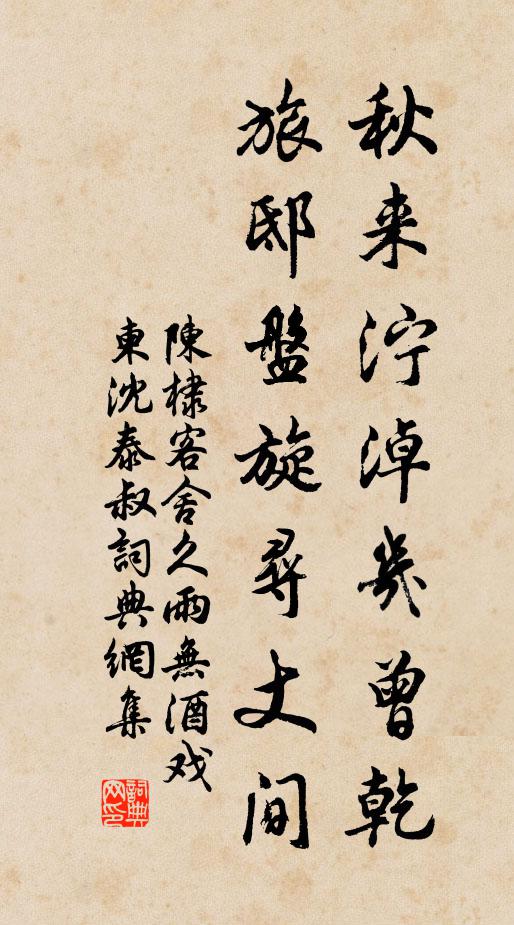 秋来泞淖几曾乾
旅邸盤旋尋丈间
陳棣客舍久雨無酒戏
東沈泰叔詞典網集
詞典网印